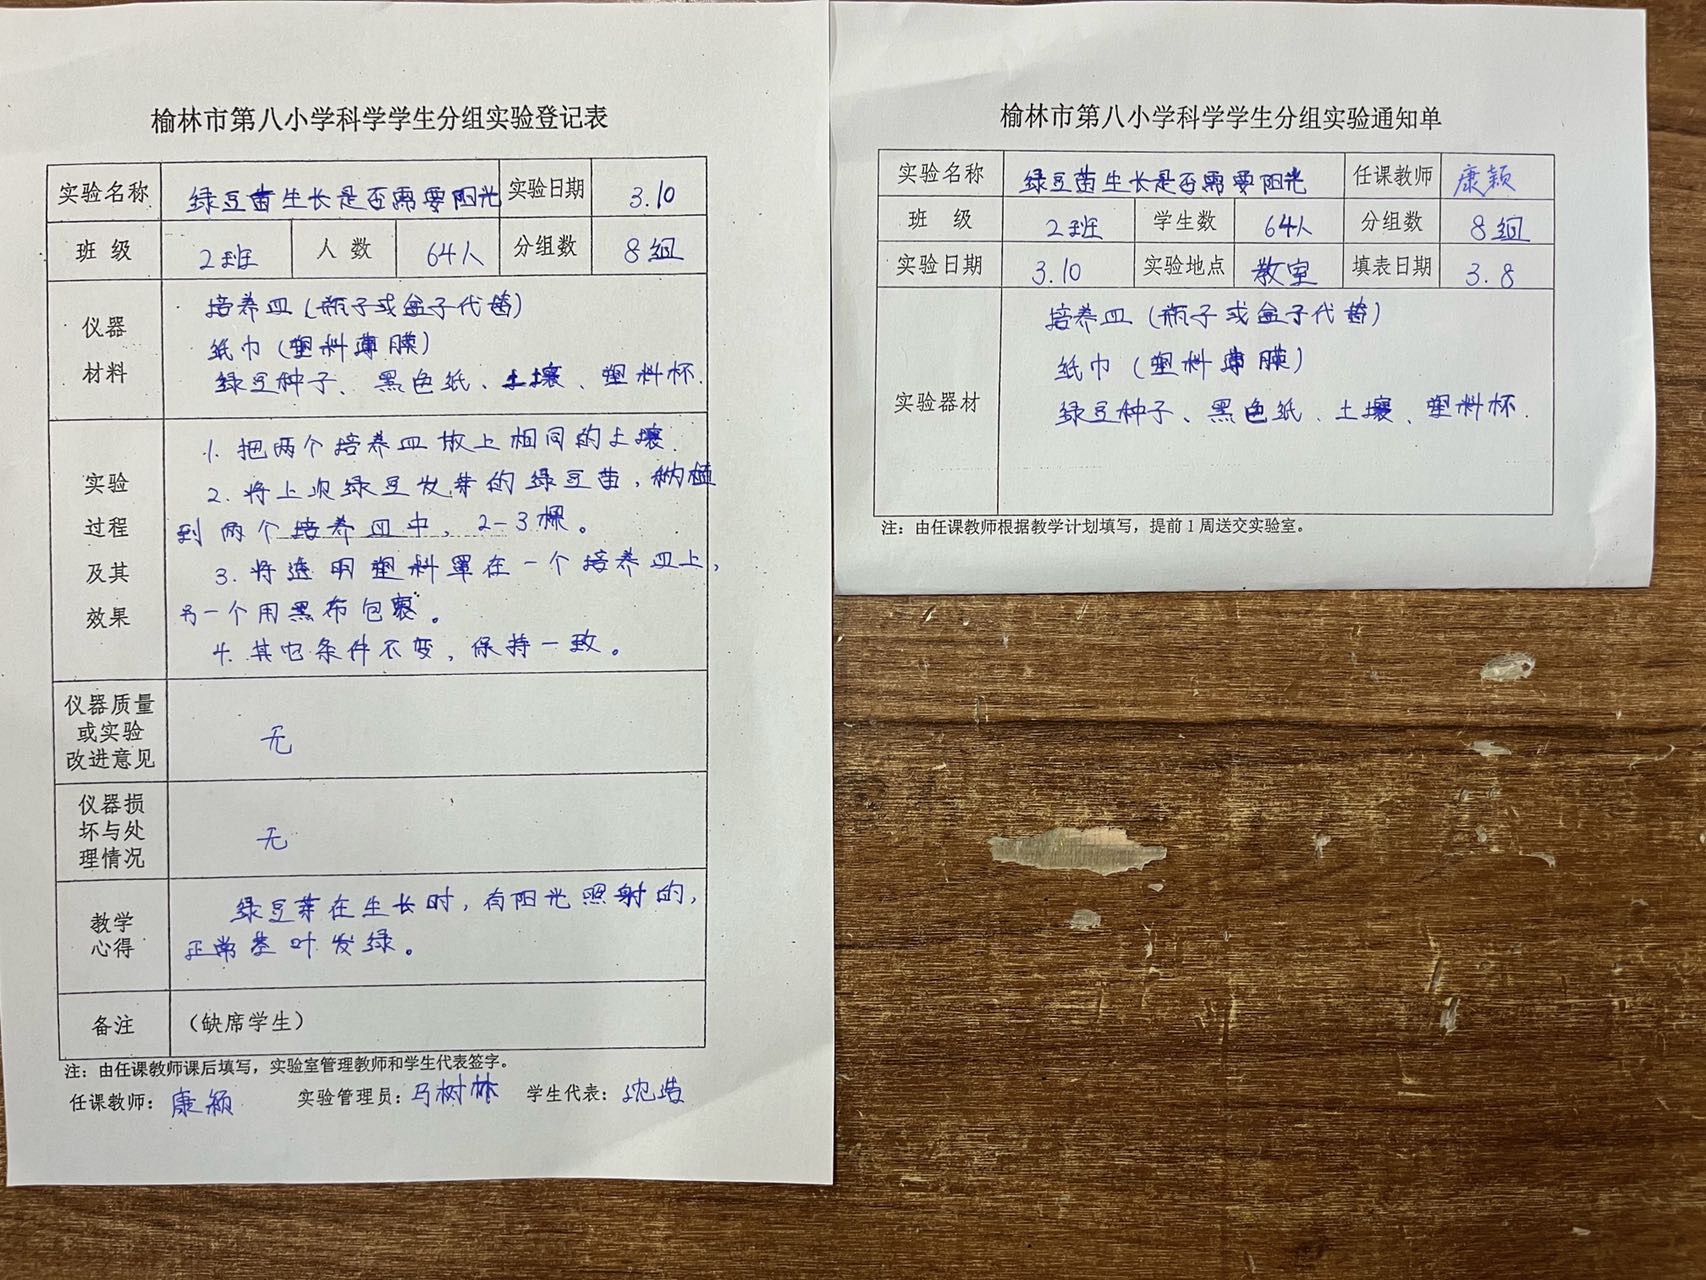 榆林市第八小学科学学生分组实验登记表
实验名称 绿豆苗生长是否需要阳光 实验日期 3.10
班 级 2班 人 数 64人 分组数 8组
仪器
材料
培养皿(瓶子或盒子代替)
纸巾(塑料薄膜)
绿豆种子、黑色纸、土壤、塑料杯.
实验
过程
及其
效果
1. 把两个培养皿放上相同的土壤.
2. 将上次绿豆发芽的绿豆苗,移植
到两个培养皿中, 2-3棵。
3. 将透明塑料罩在一个培养皿上,
另一个用黑布包裹。
4. 其它条件不变,保持一致。
仪器质量
或实验
改进意见
无
仪器损
坏与处
理情况
无
教学
心得
绿豆芽在生长时,有阳光照射的,
正常茎叶发绿。
备注 (缺席学生)
注:由任课教师课后填写,实验室管理教师和学生代表签字。
任课教师: 康颖 实验管理员: 马树林 学生代表: 沈浩
榆林市第八小学科学学生分组实验通知单
实验名称 绿豆苗生长是否需要阳光 任课教师 康颖
班 级 2班 学生数 64人 分组数 8组
实验日期 3.10 实验地点 教室 填表日期 3.8
实验器材
培养皿(瓶子或盒子代替)
纸巾(塑料薄膜)
绿豆种子、黑色纸、土壤、塑料杯.
注:由任课教师根据教学计划填写,提前1周送交实验室。